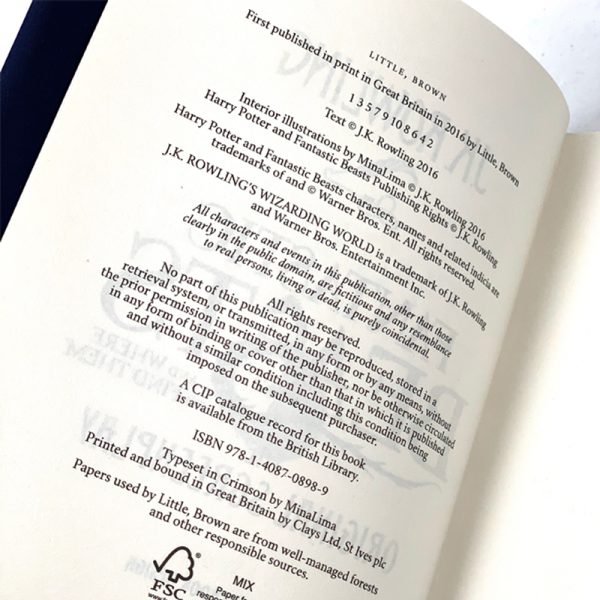 LITTLE, BROWN
First published in print in Great Britain in 2016 by Little, Brown
1 3 5 7 9 10 8 6 4 2
Text © J.K. Rowling 2016
Interior illustrations by MinaLima © J.K. Rowling 2016
Harry Potter and Fantastic Beasts Publishing Rights © J.K. Rowling
Harry Potter and Fantastic Beasts characters, names and related indicia are
trademarks of and © Warner Bros. Ent. All rights reserved.
J.K. ROWLING'S WIZARDING WORLD is a trademark of J.K. Rowling
and Warner Bros. Entertainment Inc.
All characters and events in this publication, other than those
clearly in the public domain, are fictitious and any resemblance
to real persons, living or dead, is purely coincidental.
All rights reserved.
No part of this publication may be reproduced, stored in a
retrieval system, or transmitted, in any form or by any means, without
the prior permission in writing of the publisher, nor be otherwise circulated
in any form of binding or cover other than that in which it is published
and without a similar condition including this condition being
imposed on the subsequent purchaser.
A CIP catalogue record for this book
is available from the British Library.
ISBN 978-1-4087-0898-9
Typeset in Crimson by MinaLima
Printed and bound in Great Britain by Clays Ltd, St Ives plc
Papers used by Little, Brown are from well-managed forests
and other responsible sources.
FSC
MIX
Paper